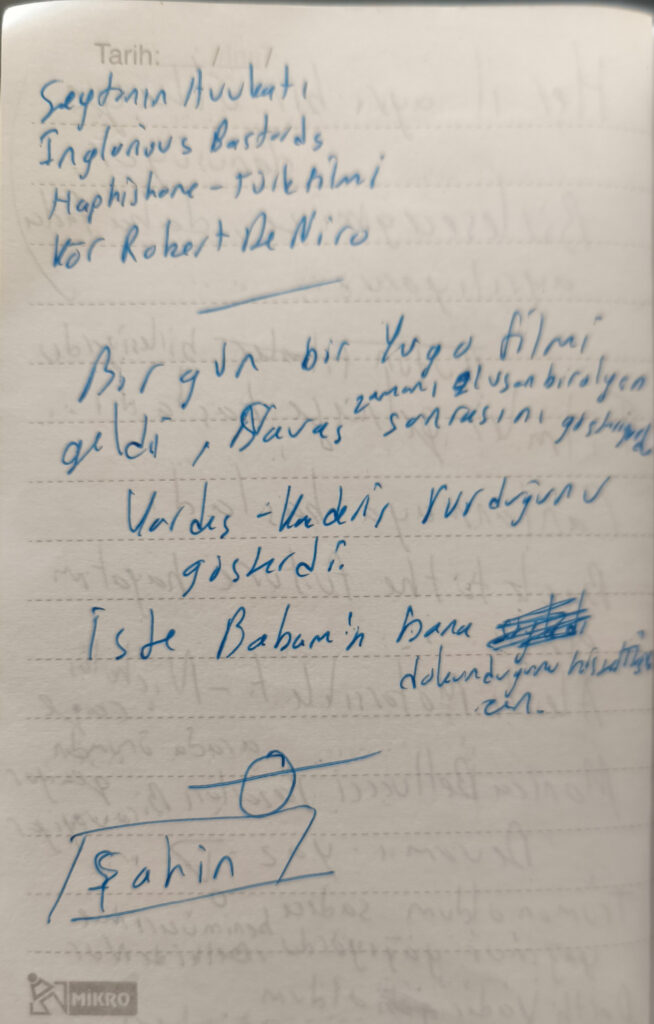 Tarih: / /
Şeytanın Avukatı
Inglorious Bastards
Haphishane - Türk filmi
Kör Robert De Niro
Bir gün bir Yugo filmi
geldi, Savaş zamanı oluşan bir olyın
sonrasını gösteriyordu
Kardeş - Kaderin vurduğunu
gösterdi.
İşte Babam'ın bana
dokunduğunu hissettiğim
an.
Şahin
MİKRO